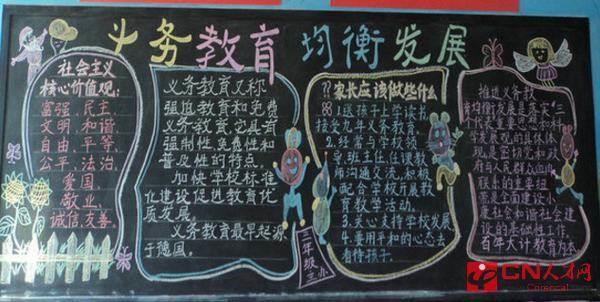 义务教育 均衡发展
社会主义
核心价值观:
富强、民主、
文明、和谐、
自由、平等、
公平、法治、
爱国、
敬业、
诚信、友善。
义务教育又称
强迫教育和免费
义务教育,它具有
强制性、免费性和
普及性的特点。
加快学校标准
化建设促进教育优
质发展。
义务教育最早起源
于德国。
三年级主办
??家长应该做些什么
1.送孩子上学读书
接受九年义务教育。
2.经常与学校领
导班主任任课教
师沟通交流,积极
配合学校开展教
育教学活动。
3.关心支持学校发展。
4.要用平和的心态去
看待孩子。
推进义务教
育均衡发展是落实"三
个代表重要思想和科
学发展观的具体体
现,是密切党和政
府与人民群众血肉
联系的主要组
带是全面建设小
康社会和谐社会建
设的基础性工作。
百年大计教育为本
CN人才网
Cnrencai